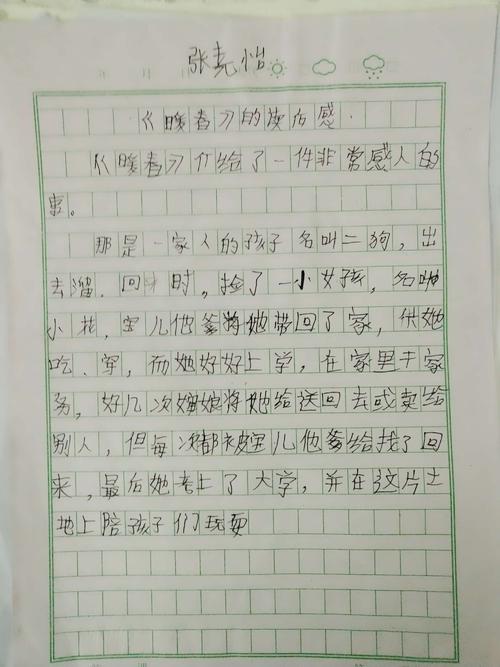 张尧怡
《暖春》的读后感.
《暖春》介给了一件非常感人的
事。
那是一家人的孩子名叫二狗，出
去溜.回来时。捡了一小女孩，名叫
小花，宝儿他爹将她带回了家，供她
吃、穿，而她好好上学，在家里干家
务，好几次婶娘将她给送回去或卖给
别人，但每次都被宝儿他爹给找了回
来，最后她考上了大学，并在这片土
地上陪孩子们玩耍